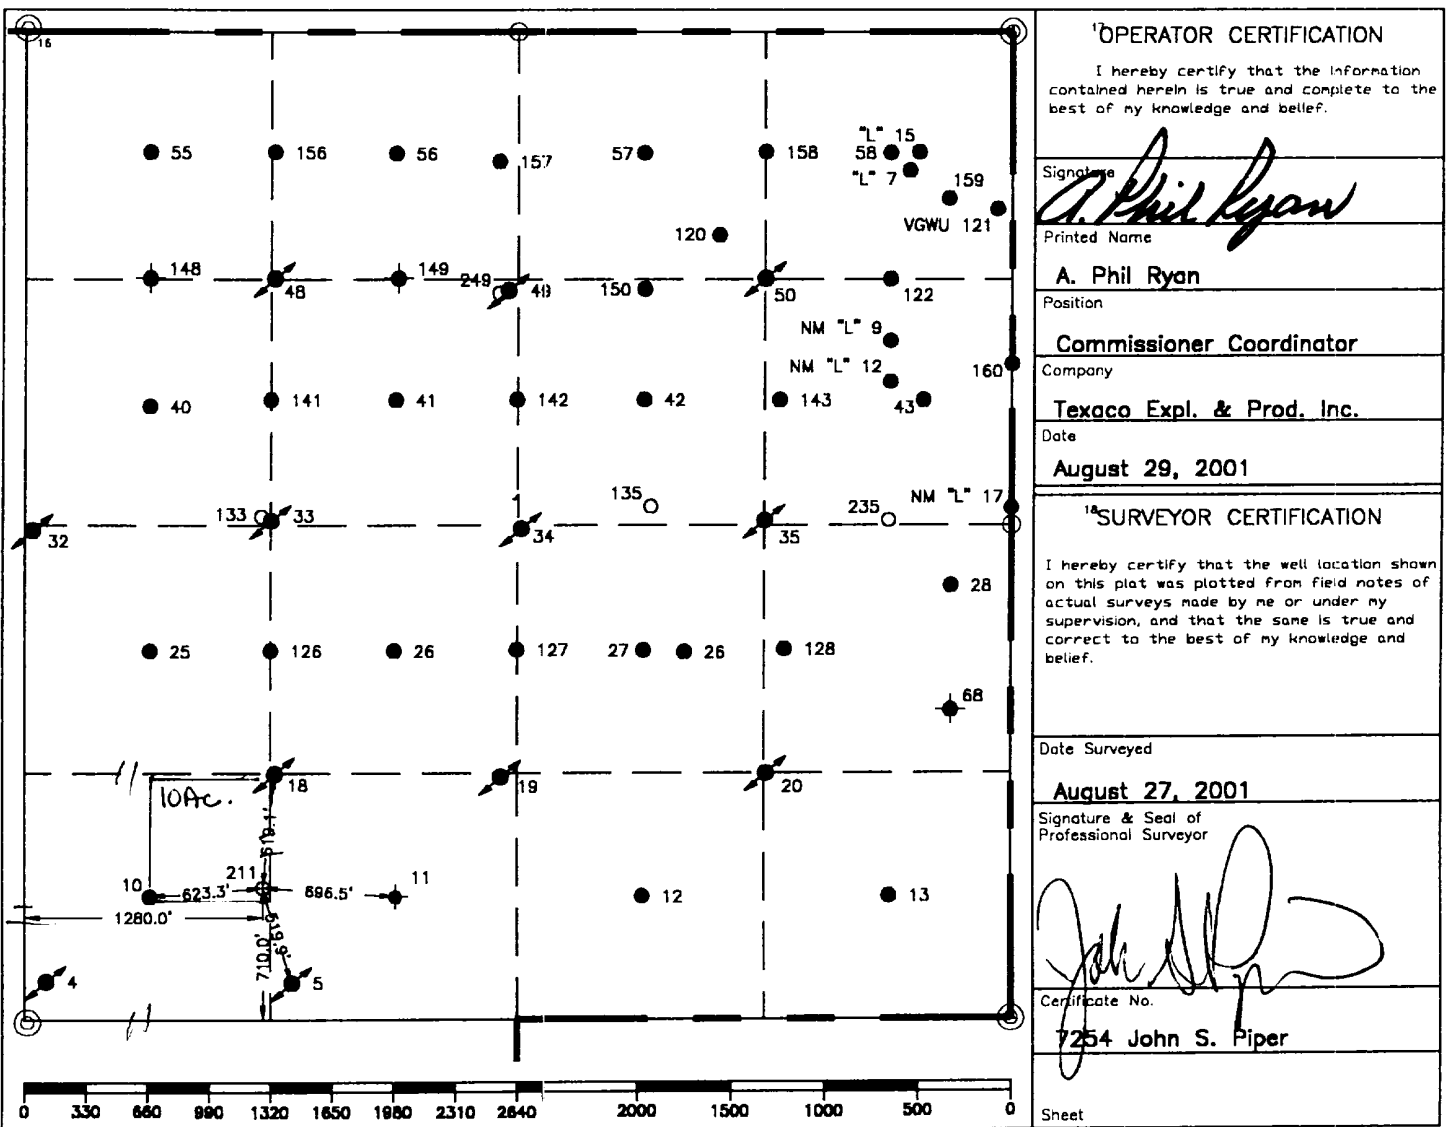 16
55 156 56 157 57 158 "L" 15
58
"L" 7
159
VGWU 121
120
148 48 149 249 49 150 50 122
NM "L" 9
NM "L" 12
160
40 141 41 142 42 143 43
NM "L" 17
133 33 1 135 235
32 34 35
28
25 126 26 127 27 26 128
68
18 19 20
10Ac.
619.1'
10 211 11
623.3' 696.5' 12 13
1280.0'
619.9'
710.0'
4 5
0 330 660 990 1320 1650 1980 2310 2640 2000 1500 1000 500 0
17 OPERATOR CERTIFICATION
I hereby certify that the information
contained herein is true and complete to the
best of my knowledge and belief.
Signature
A. Phil Ryan
Printed Name
A. Phil Ryan
Position
Commissioner Coordinator
Company
Texaco Expl. & Prod. Inc.
Date
August 29, 2001
18 SURVEYOR CERTIFICATION
I hereby certify that the well location shown
on this plat was plotted from field notes of
actual surveys made by me or under my
supervision, and that the same is true and
correct to the best of my knowledge and
belief.
Date Surveyed
August 27, 2001
Signature & Seal of
Professional Surveyor
Certificate No.
7254 John S. Piper
Sheet